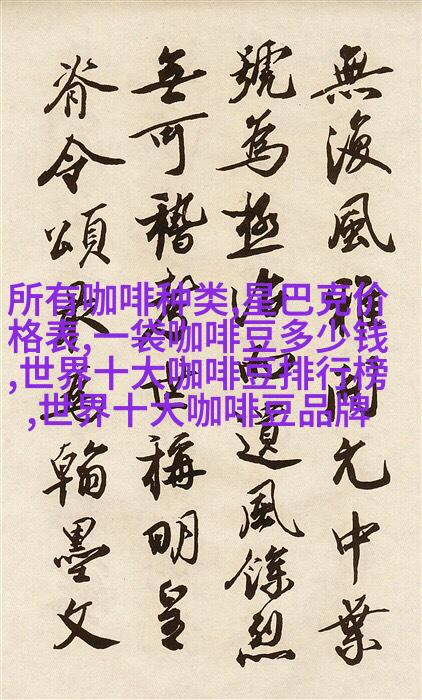 無復風雅開元中葉
號為極治而遺風餘烈
無可稽者世稱明皇
脊令頌為翰墨文
所有咖啡种类,星巴克价
格表,一袋咖啡豆多少钱
,世界十大咖啡豆排行榜
,世界十大咖啡豆品牌